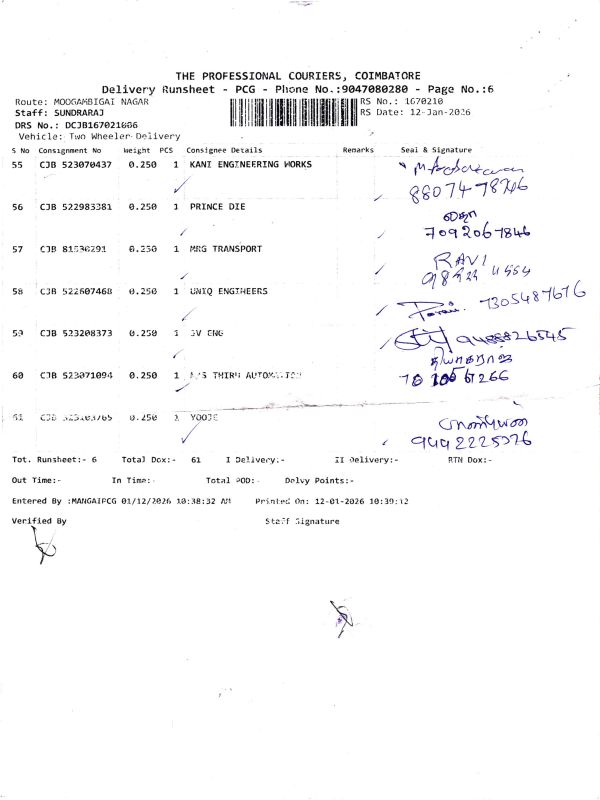 THE PROFESSIONAL COURIERS, COIMBATORE
Delivery Runsheet - PCG - Phone No.:9047080280 - Page No.:6
Route: MOOGAMBIGAI NAGAR RS No.: 1670210
Staff: SUNDRARAJ RS Date: 12-Jan-2026
DRS No.: DCJB167021006
Vehicle: Two Wheeler Delivery
S No Consignment No Weight PCS Consignee Details Remarks Seal & Signature
55 CJB 523070437 0.250 1 KANI ENGINEERING WORKS
56 CJB 522983381 0.250 1 PRINCE DIE
7092067846
57 CJB 81530291 0.250 1 MRG TRANSPORT RAVI
58 CJB 522607468 0.250 1 UNIQ ENGINEERS 7305487676
59 CJB 523208373 0.250 1 SV ENG 9488826545
தியாகராஜ
60 CJB 523071094 0.250 1 M/S THIRD AUTOMATION
61 CJB 1 YOOJE
Tot. Runsheet:- 6 Total Dox:- 61 I Delivery:- II Delivery:- RTN Dox:-
Out Time:- In Time:- Total POD:- Delvy Points:-
Entered By :MANGAIPCG 01/12/2026 10:38:32 AM Printed On: 12-01-2026 10:39:12
Verified By Staff Signature